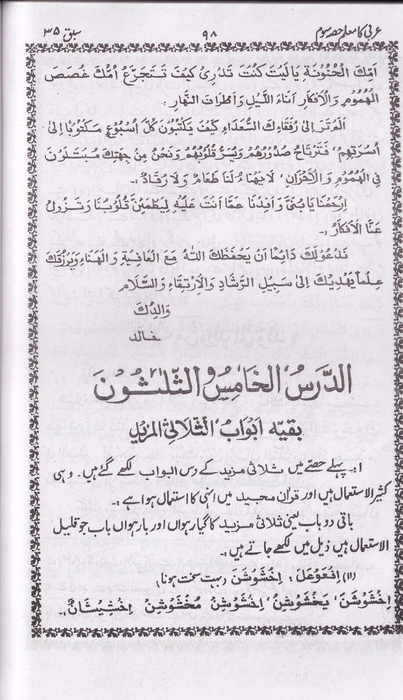 عربی کا معلم حصہ سوم ۹۸ سبق ۳۵
اُمَّكَ الْحَنُونَةَ يَا لَيْتَ كُنْتَ تَدْرِىْ كَيْفَ تَتَجَرَّعُ اُمُّكَ غُصَصَ
الْهُمُوْمِ وَالْاَفْكَارِ آنَاءَ اللَّيْلِ وَاَطْرَافَ النَّهَارِ۔
اَلَمْ تَرَ اِلٰى رُفَقَائِكَ السُّعَدَاءِ كَيْفَ يَكْتُبُوْنَ كُلَّ اُسْبُوْعٍ مَكْتُوْبًا اِلٰى
اُسْرَتِهِمْ، فَتَرْتَاحُ صُدُوْرُهُمْ وَيَسُرُّ قُلُوْبَهُمْ وَنَحْنُ مِنْ جِهَتِكَ مُبْتَلَوْنَ
فِى الْهُمُوْمِ وَالْاَحْزَانِ، لَا يَهْنَاُ لَنَا طَعَامٌ وَلَا رُقَادٌ۔
اِرْحَمْنَا يَا بُنَىَّ وَاَفِدْنَا عَمَّا اَنْتَ عَلَيْهِ لِيَطْمَئِنَّ قُلُوْبُنَا وَتَزُوْلَ
عَنَّا الْاَفْكَارُ۔
نَدْعُوْ لَكَ دَائِمًا اَنْ يَحْفَظَكَ اللّٰهُ مَعَ الْعَافِيَةِ وَالْهَنَاءِ وَيَرْزُقَكَ
عِلْمًا يَهْدِيْكَ اِلٰى سَبِيْلِ الرَّشَادِ وَالْاِرْتِقَاءِ وَالسَّلَام
وَالِدُكَ
خالد
الدَّرْسُ الْخَامِسُ وَالثَّلٰثُوْنَ
بقیہ ابواب الثلاثی المزید
۱۔ پہلے حصے میں ثلاثی مزید کے دس ابواب لکھے گئے ہیں۔ وہی
کثیر الاستعمال ہیں اور قرآن مجید میں انہی کا استعمال ہوا ہے۔
باقی دو باب یعنی ثلاثی مزید کا گیارہواں اور بارہواں باب جو قلیل
الاستعمال ہیں ذیل میں لکھے جاتے ہیں۔
(۱۱) اِفْعَوْعَلَ: اِخْشَوْشَنَ (بہت سخت ہونا)
اِخْشَوْشَنَ، يَخْشَوْشِنُ، اِخْشَوْشِنْ مُخْشَوْشِنٌ اِخْشِيْشَانٌ۔